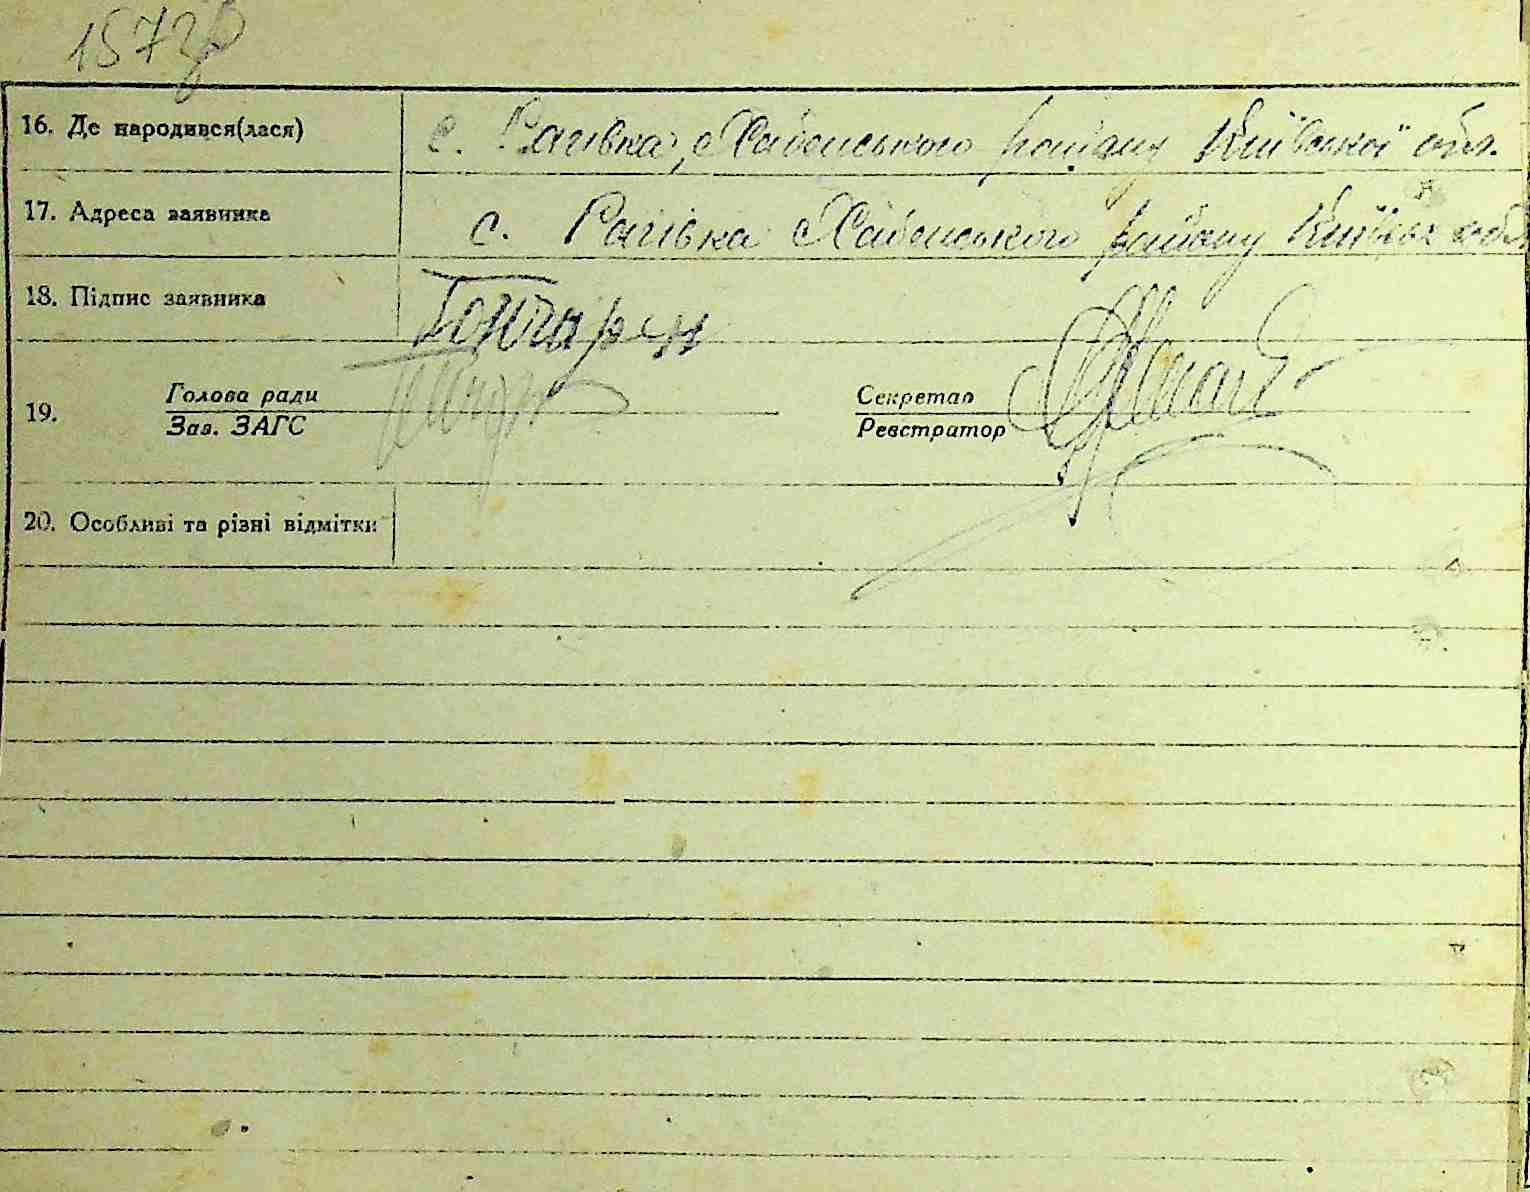 1573
16. Де народився(лася) с. Рагівка, Хабенського району Київської обл.
17. Адреса заявника с. Рагівка Хабенського району Київськ обл
18. Підпис заявника Гончарен
Голова ради Секретар
19.
Зав. ЗАГС Реєстратор
20. Особливі та різні відмітки